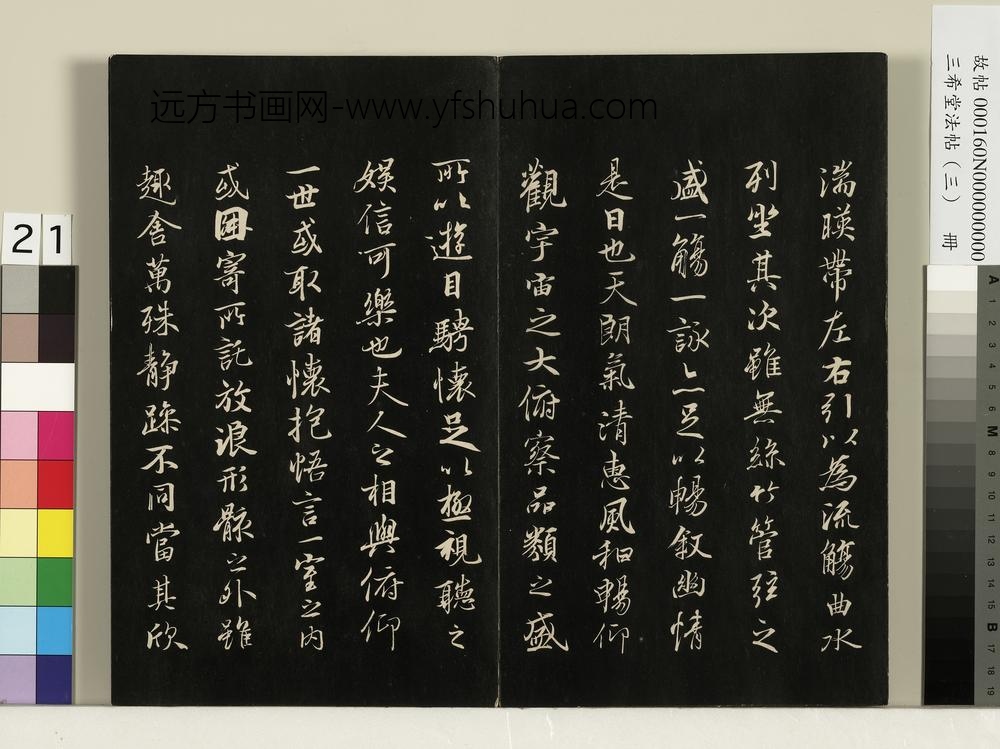 湍暎帶左右引以為流觴曲水
列坐其次雖無絲竹管弦之
盛一觴一詠亦足以暢敘幽情
是日也天朗氣清惠風和暢仰
觀宇宙之大俯察品類之盛
所以遊目騁懷足以極視聽之
娛信可樂也夫人之相與俯仰
一世或取諸懷抱悟言一室之內
或因寄所託放浪形骸之外雖
趣舍萬殊靜躁不同當其欣
远方书画网-www.yfshuhua.com
故帖 000160N000000000
三希堂法帖（三） 冊
21
A 1 2 3 4 5 6 M 8 9 10 11 12 13 14 15 B 17 18 19